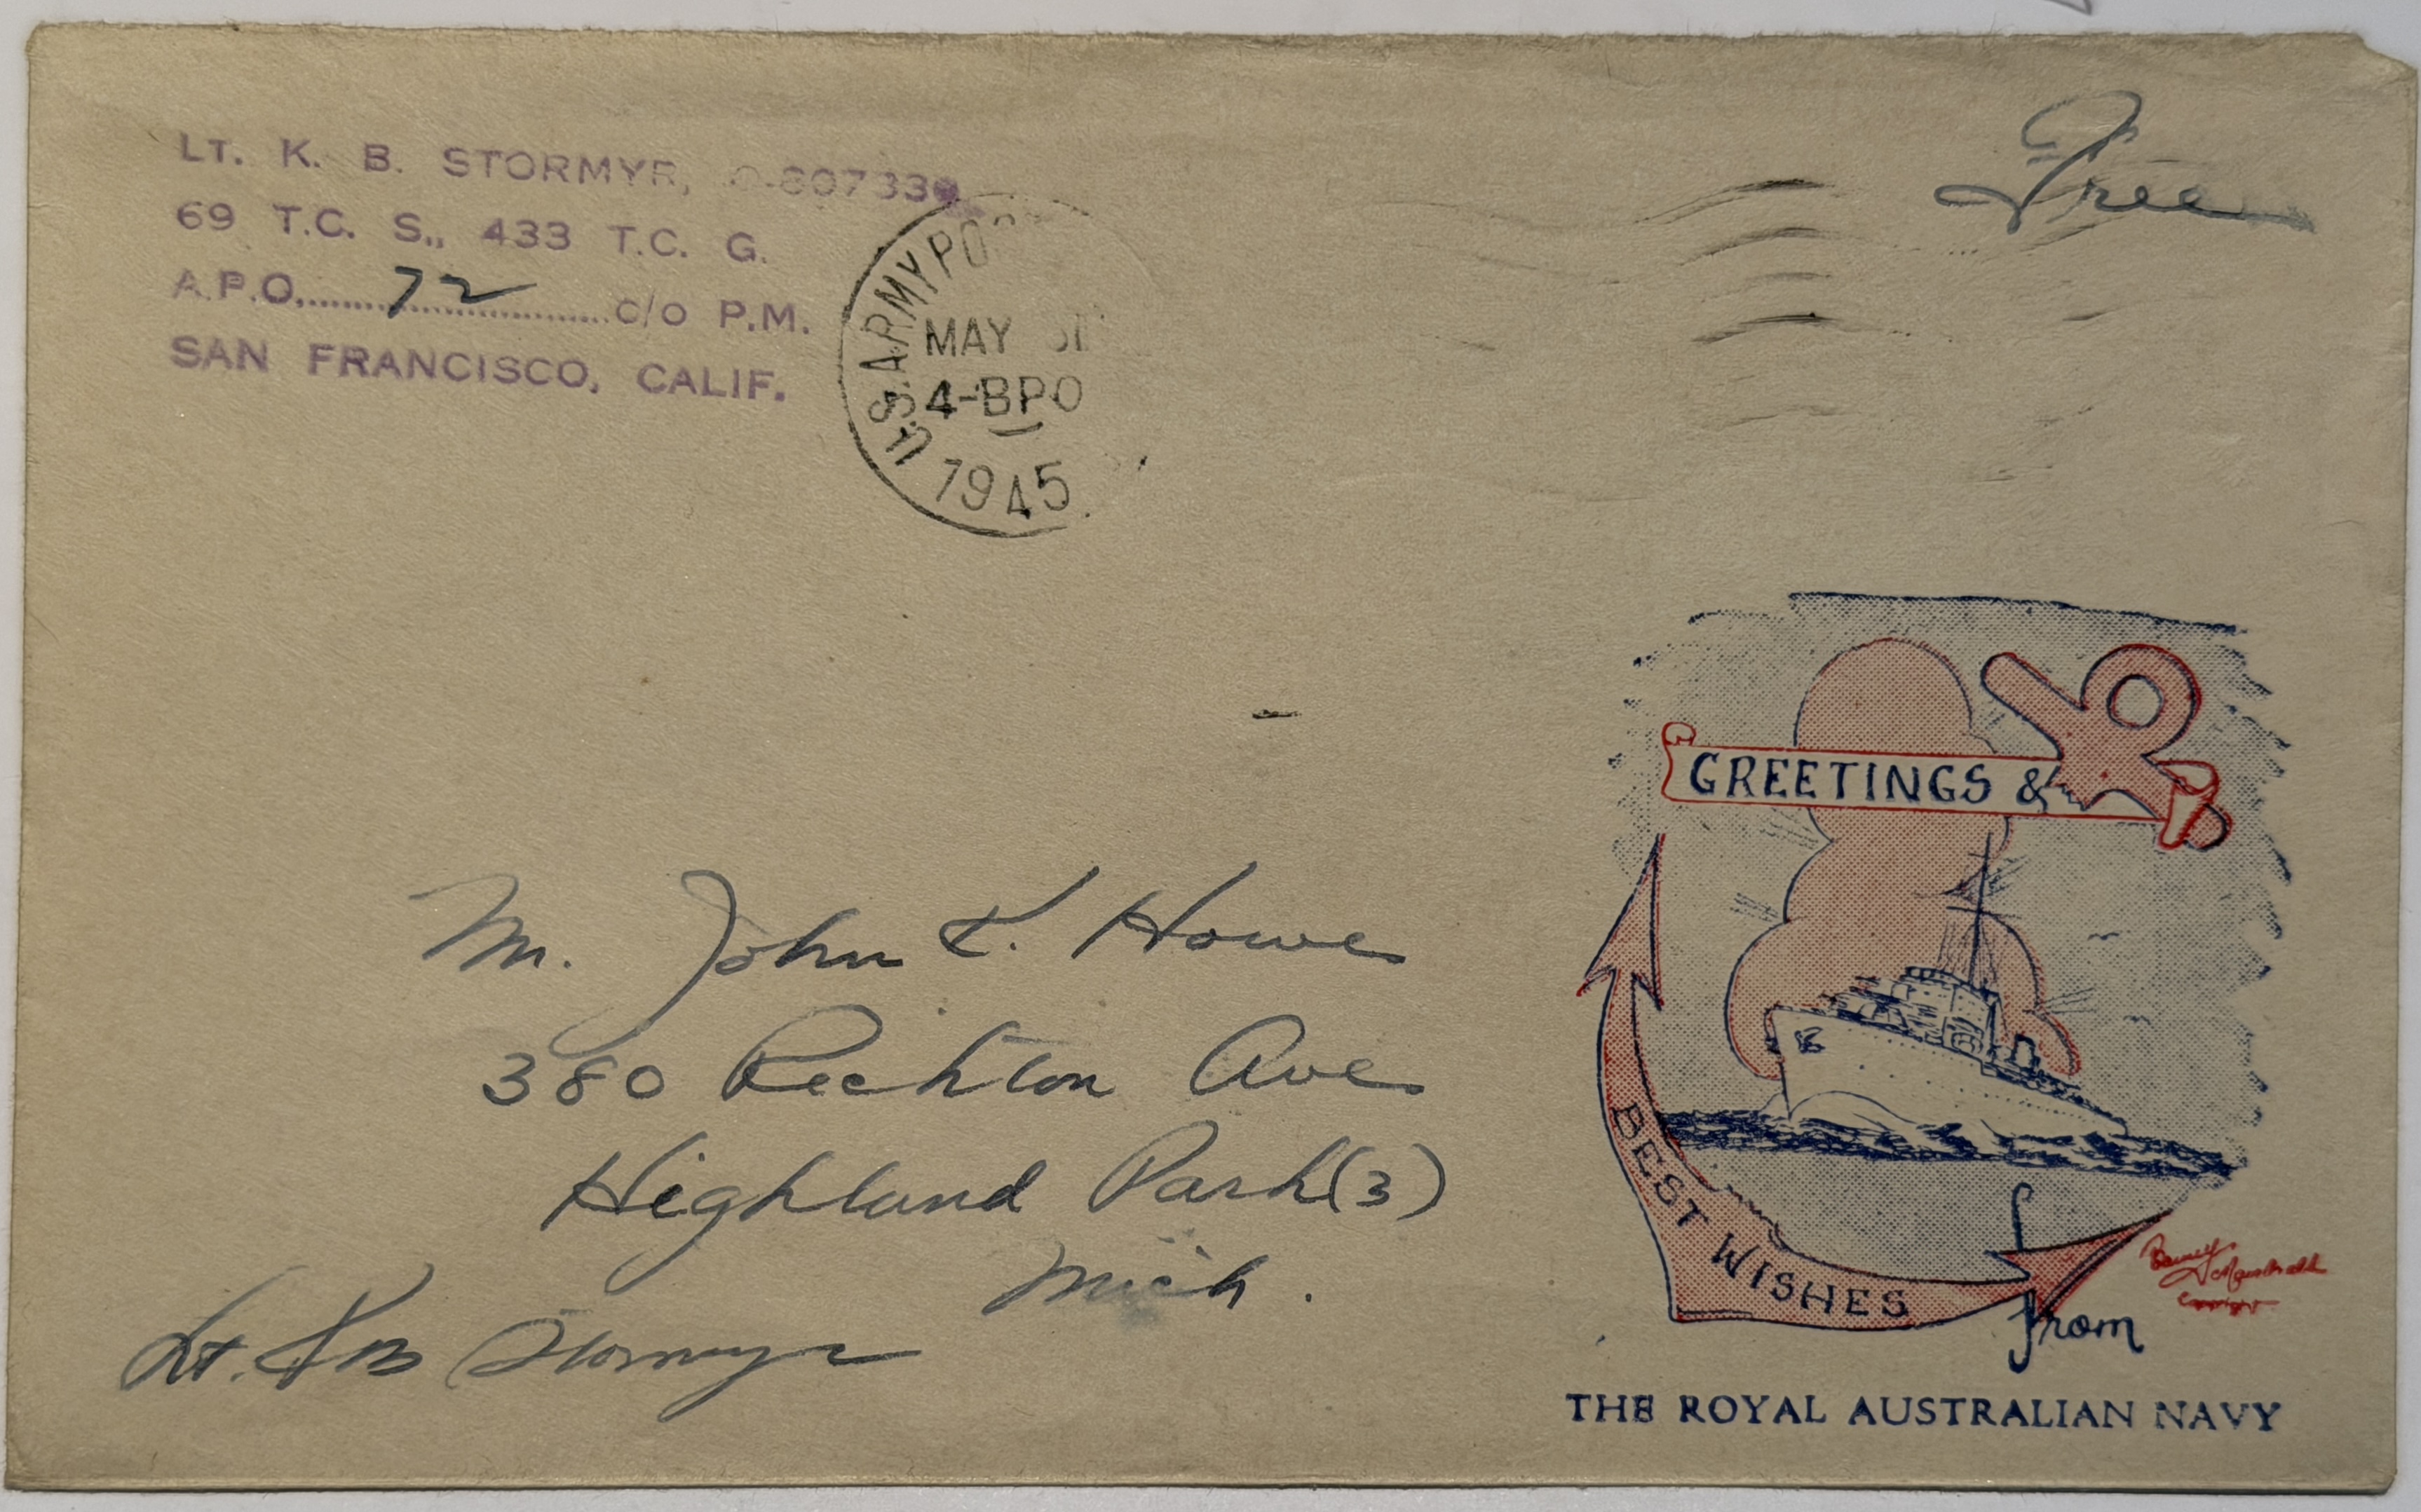 LT. K. B. STORMYR, O-807339
69 T.C. S., 433 T.C. G.
A.P.O. 72 c/o P.M.
SAN FRANCISCO, CALIF.
U.S. ARMY
MAY
4-BPO
1945
Free
GREETINGS &
BEST WISHES
from
THE ROYAL AUSTRALIAN NAVY
M. John K. Howe
380 Rechton Ave
Highland Park (3)
Mich.
Lt. KB Stormyr